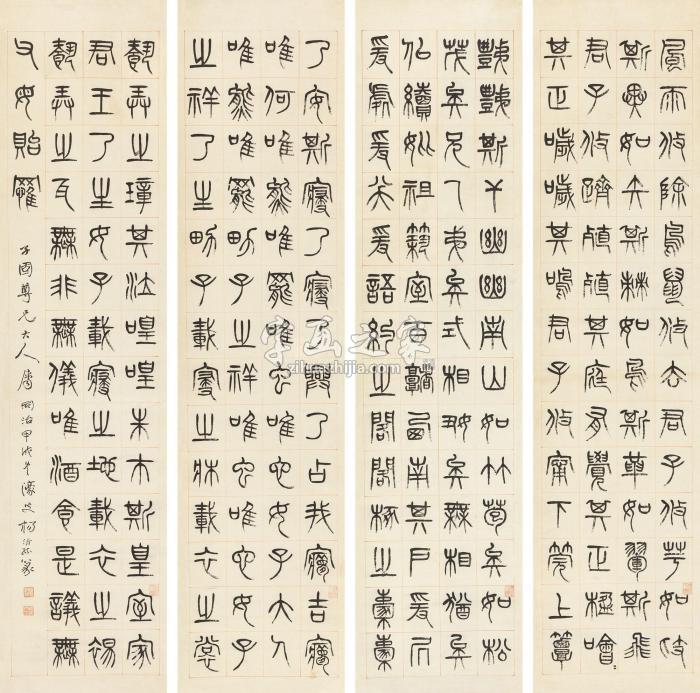 風雨攸除鳥鼠攸去君子攸芋如跂
斯翼如矢斯棘如鳥斯革如翬斯飛
君子攸躋殖殖其庭有覺其正楹噲
其正噦噦其鳴君子攸寧下莞上簟
秩秩斯干幽幽南山如竹苞矣如松
茂矣兄及弟矣式相好矣無相猶矣
似續妣祖築室百堵西南其戶爰凥
爰處爰笑爰語約之閣閣椓之橐橐
乃安斯寢乃寢乃興乃占我夢吉夢
唯何唯熊唯羆唯虫唯它女子大人
唯熊唯羆男子之祥唯虫唯它女子
之祥乃生男子載寢之牀載衣之裳
載弄之璋其泣喤喤朱市斯皇室家
君王乃生女子載寢之地載衣之裼
載弄之瓦無非無儀唯酒食是議無
父母貽罹
子固尊兄大人屬 同治甲戌冬濠叟楊沂孫篆
字画之家
zihuazhijia.com